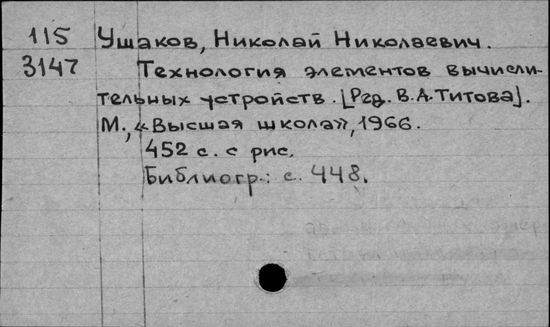 115 Ушаков, Николай Николаевич.
3147 Технология элементов вычисли-
тельных устройств. [Ред. В.А. Титова].
М., «Высшая школа», 1966.
452 с. с рис.
Библиогр.: с. 448.